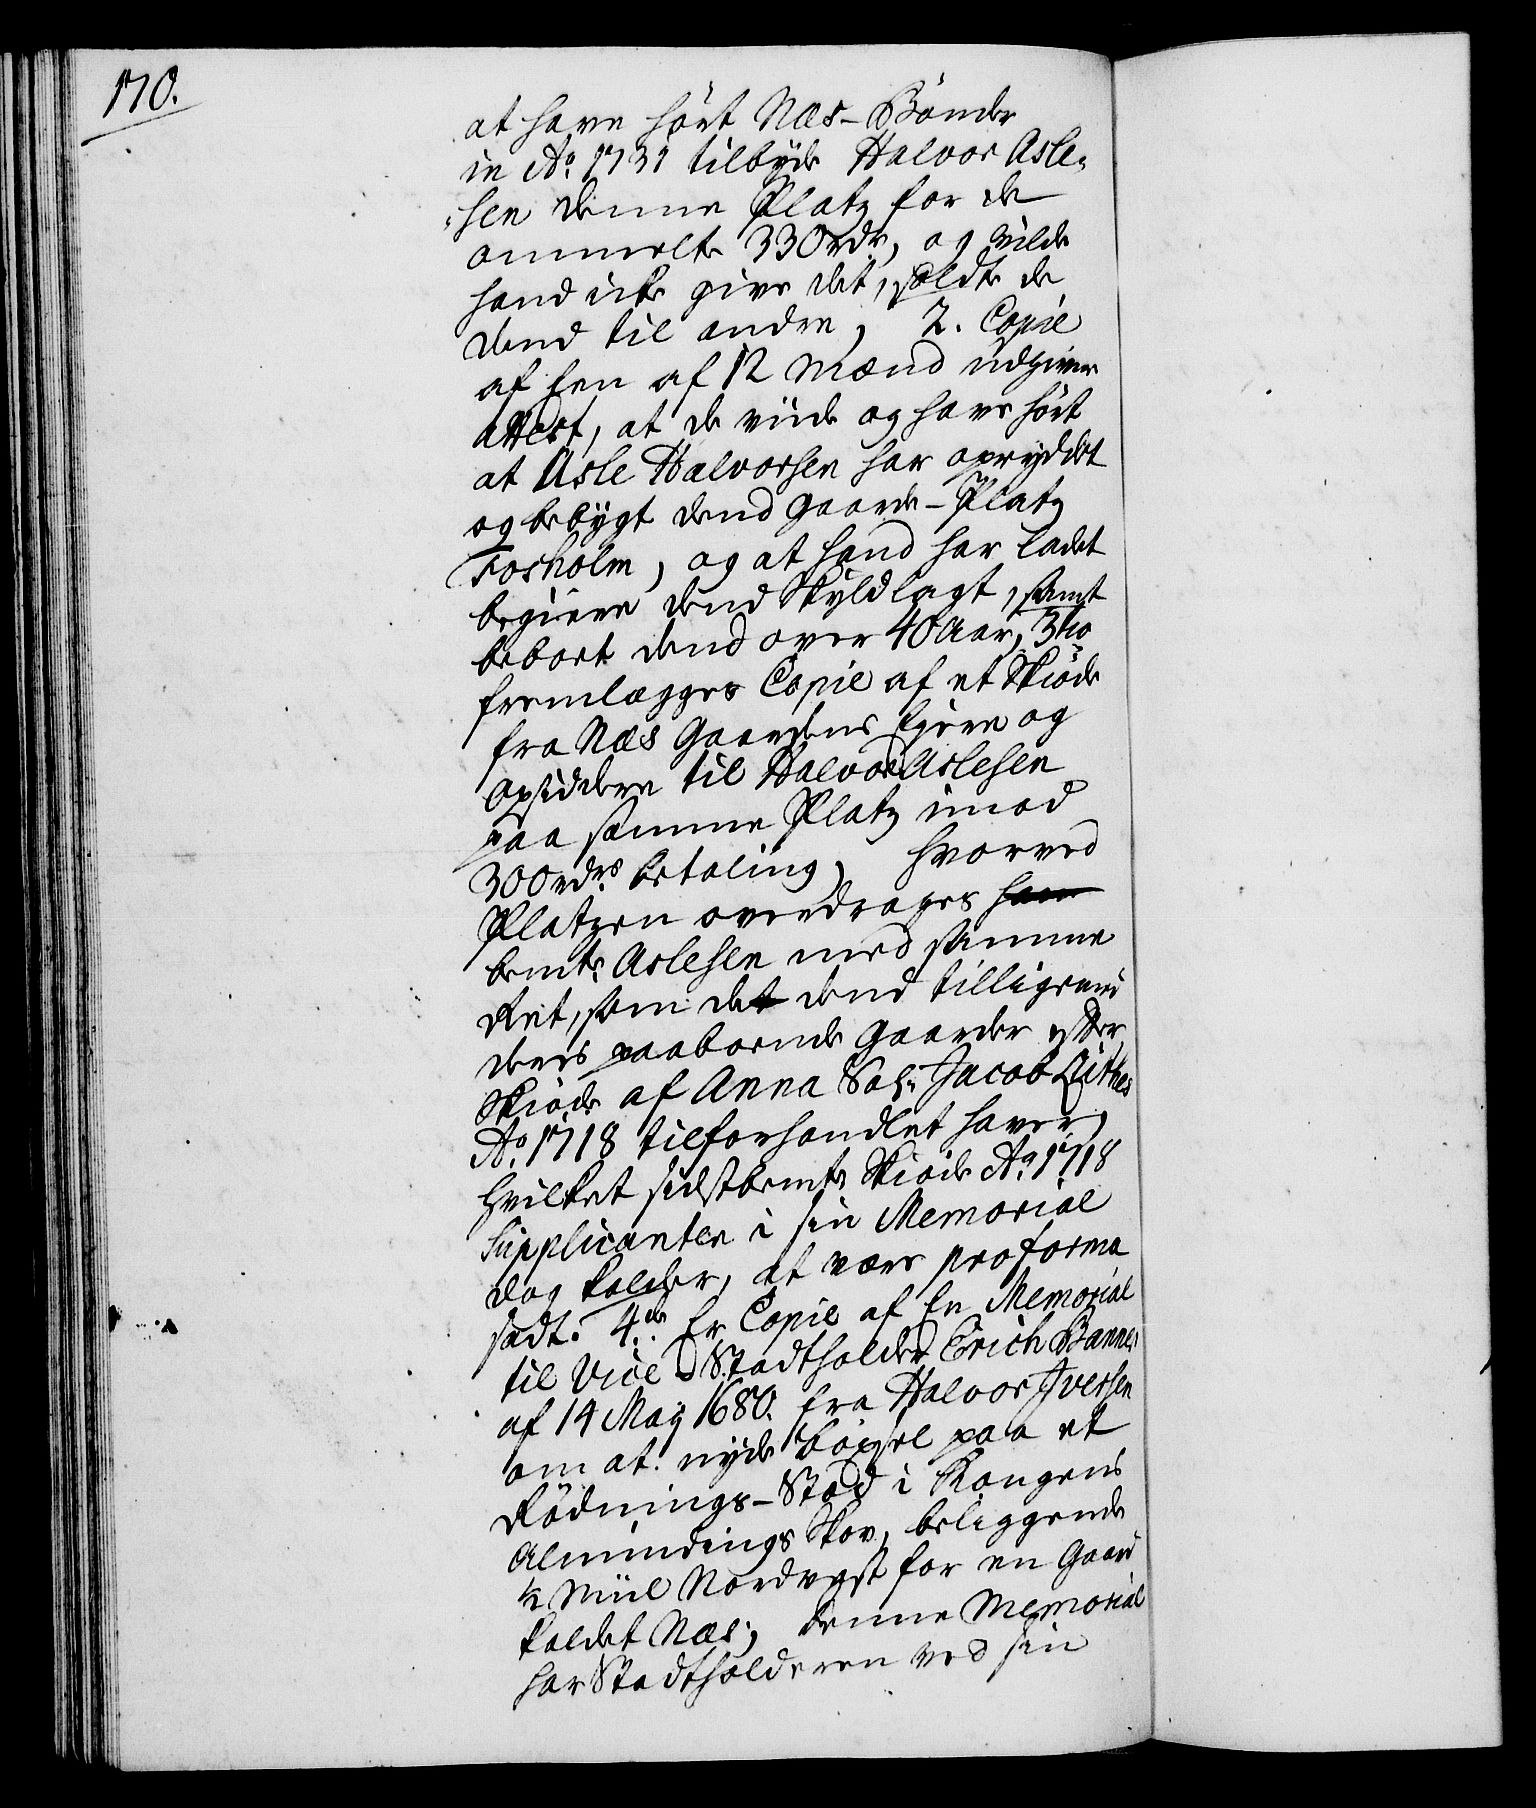 170.
at have hört Næs-Bönder
in Aº 1731 tilbyde Halvor Asle-
-sen denne Platz for de
ommelte 330 rdr, og vilde
hand icke give det, soldte de
dend til andre, 2. Copie
af een af 12 Mænd udgiven
attest, at de viide og have hört
at Asle Halvorsen har opryddet
og bebygt dend Gaards-Platz
Fosholm, og at hand har ladet
begiere dend Skyldlagt, samt
beboet dend over 40 Aar, 3tio
fremlægges Copie af et Skiöde
fra Næs Gaardens Ejere og
Opsiddere til Halvor Aslesen
paa samme Platz imod
300 rdrs betaling, hvorved
Platzen overdrages ham
bemte Aslesen med samme
Ret, som det dend tilligemed
deres paaboende Gaarder efter
Skiöde af Anna Sal. Jacob Lütkes
Aº 1718 tilforhandlet haver,
hvilket sidstbemte Skiöde Aº 1718
Supplicanten i sin Memorial
dog kalder, at være proforma
sadt. 4de Er Copie af En Memorial
til Vice-Stadtholder Erich Banner
af 14 Maij 1680. fra Halvor Iversen
om at nyde böxsel paa et
Rödnings-Stad i Kongens
Almindings Skov, beliggende
½ Miil Nordvest for en Gaard
kaldet Næs, denne Memorial
har Stadtholderen ved sin